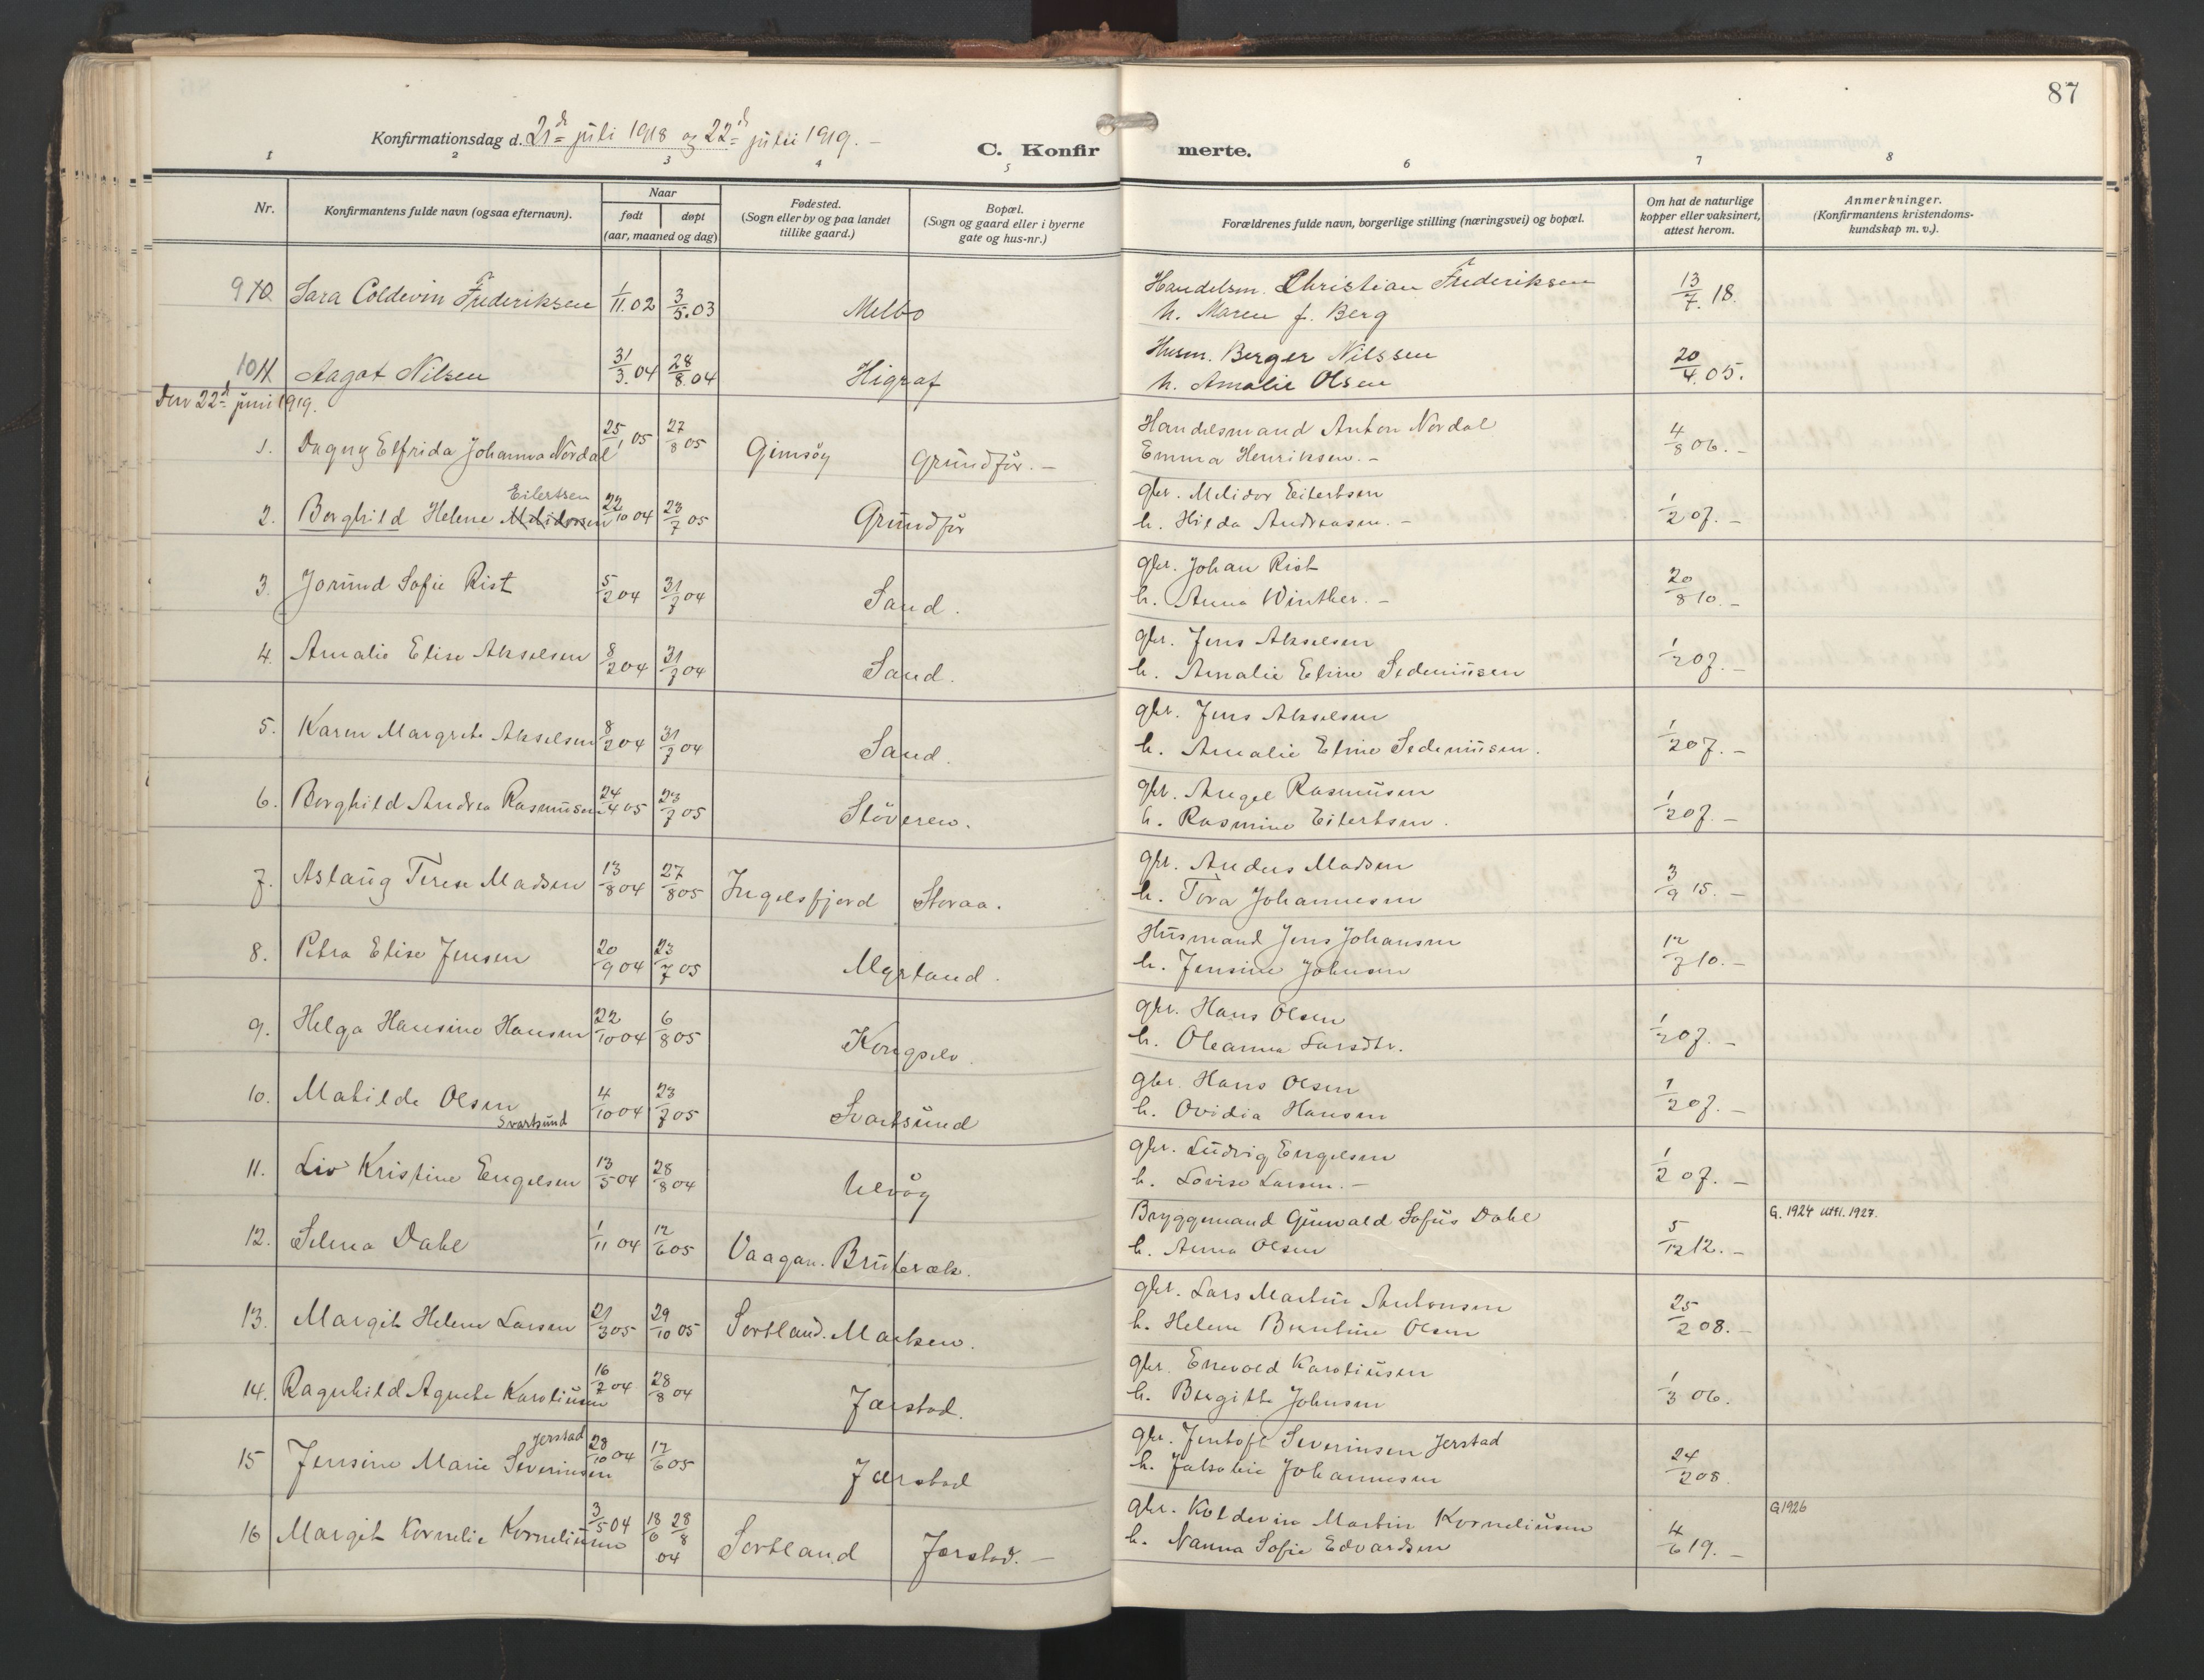 87
Konfirmationsdag d. 21de juli 1918 og 22de juni 1919. –
C. Konfirmerte.
1 2 3 4 5 6 7 8
Nr. Konfirmantens fulde navn (ogsaa efternavn). Naar født døpt (aar, maaned og dag) Fødested. (Sogn eller by og paa landet tillike gaard.) Bopæl. (Sogn og gaard eller i byerne gate og hus-nr.) Forældrenes fulde navn, borgerlige stilling (næringsvei) og bopæl. Om hat de naturlige kopper eller vaksinert, attest herom. Anmerkninger. (Konfirmantens kristendoms-kundskap m. v.).
9 10 Sara Coldevin Frederiksen 1/11.02 3/5.03 Melbo Handelsm. Christian Frederiksen 13/7.18.
h. Maren f. Berg
10 11 Aagot Nilsen 31/3.04 28/8.04 Higraf Husm. Berger Nilssen 20/4.05.
h. Amalie Olsen
Den 22de juni 1919.
1. Dagny Elfrida Johanna Nordal 25/1 05 27/8 05 Gimsøy Grundfør. – Handelsmand Anton Nordal 4/8 06. –
Emma Henriksen. –
Eilertsen
2. Borghild Helene Melidorsen 22/10 04 23/7 05 Grundfør gbr. Melidor Eilertsen 1/2 07. –
h. Hilda Andreasen. –
3. Jorund Sofie Rist 5/2 04 31/7 04 Sand. gbr. Johan Rist 20/8 10. –
h. Anna Winther. –
4. Amalie Elise Akselsen 8/2 04 31/7 04 Sand. gbr. Jens Akselsen 1/2 07. –
h. Amalie Eline Sedeniusen
5. Karen Margrete Akselsen 8/2 04 31/7 04 Sand. gbr. Jens Akselsen 1/2 07. –
h. Amalie Eline Sedeniusen.
6. Borghild Andrea Rasmusen 24/4 05 23/7 05 Støveren. gbr. Angel Rasmusen 1/2 07. –
h. Rasmine Eilertsen.
7. Aslaug Terese Madsen 13/8 04 27/8 05 Ingelsfjord Storaa. gbr. Anders Madsen 3/9 15. –
h. Tora Johannesen
8. Petra Elise Jensen 20/9 04 23/7 05 Myrland. Husmand Jens Johansen 12/7 10. –
h. Jensine Johnsen
9. Helga Hansine Hansen 22/10 04 6/8 05 Kongselv. gbr. Hans Olsen 1/2 07. –
h. Oleanna Larsdtr.
10. Matilde Olsen 4/10 04 23/7 05 Svartsund gbr. Hans Olsen 1/2 07. –
Svartsund h. Ovidia Hansen
11. Liv Kristine Engelsen 13/5 04 28/8 04 Ulvøy gbr. Ludvig Engelsen 1/2 07. –
h. Lovise Larsen. –
12. Selma Dahl 1/11 04 12/6 05 Vaagan. Bruteræk. Bryggemand Gunvald Sofus Dahl 5/12 12. – G. 1924 utfl. 1927.
h. Anna Olsen
13. Margit Helene Larsen 21/3 05 29/10 05 Sortland. Marken. gbr. Lars Martin Antonsen 25/2 08. –
h. Helene Berntine Olsen
14. Ragnhild Agnete Karoliusen 16/2 04 28/8 04 Jærstad. gbr. Enevold Karoliusen 1/3 06.
h. Birgitte Johnsen
Jerstad
15 Jensine Marie Severinsen 28/10 04 12/6 05 Jærstad gbr. Jentoft Severinsen Jerstad 24/2 08
h. Jakobie Johannesen
16 Margit Kornelie Korneliusen 3/5 04 18/6 28/8 04 Sortland Jærstad. – gbr. Koldevin Martin Korneliusen 4/6 19. – G 1926
h. Nanna Sofie Edvardsen